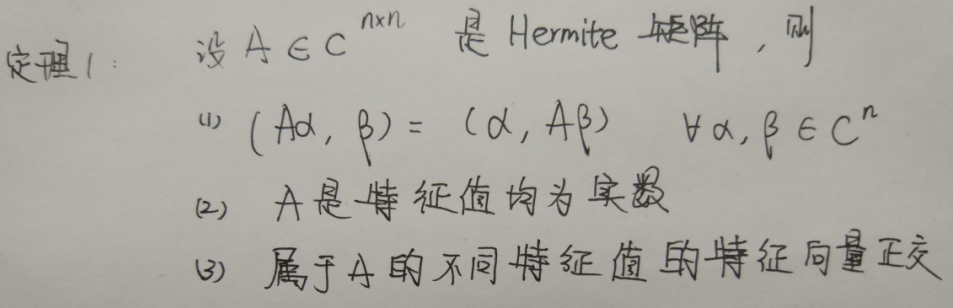 定理1: 设 A ∈ C^{n×n} 是 Hermite 矩阵, 则
(1) (Aα, β) = (α, Aβ) ∀ α, β ∈ C^n
(2) A是特征值均为实数
(3) 属于A的不同特征值的特征向量正交